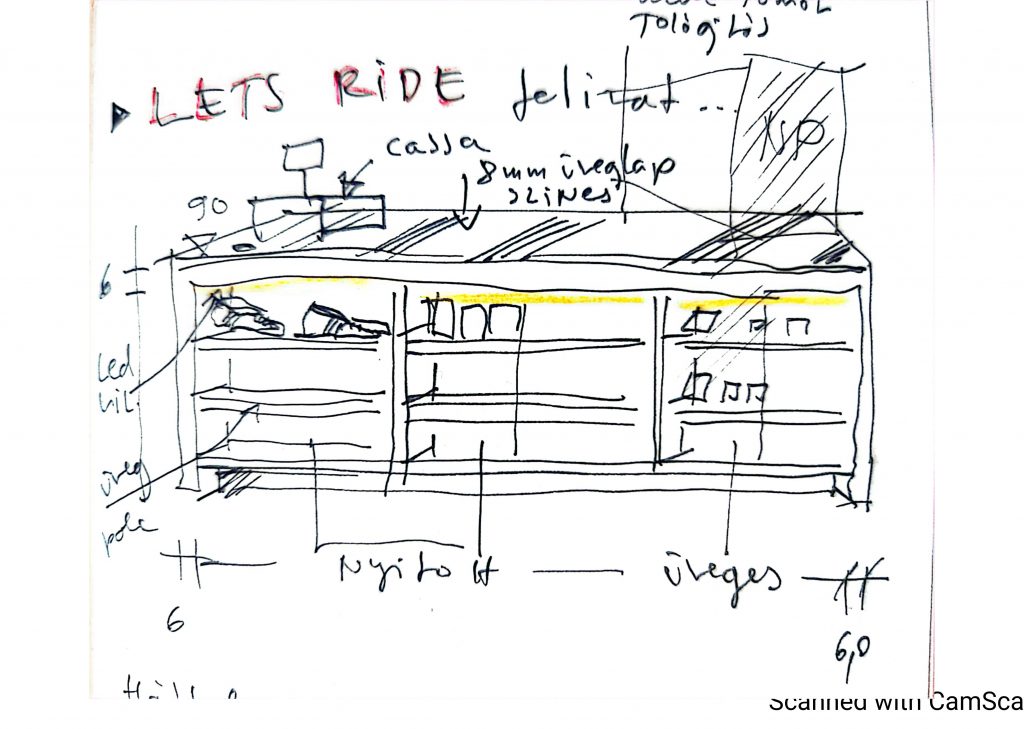 Tológlós
LETS RIDE felirat...
cassa
8mm üveglap
színes
90
6
Led
vil.
üveg
polc
Nyitott
üveges
6
6,0
Scanned with CamSca